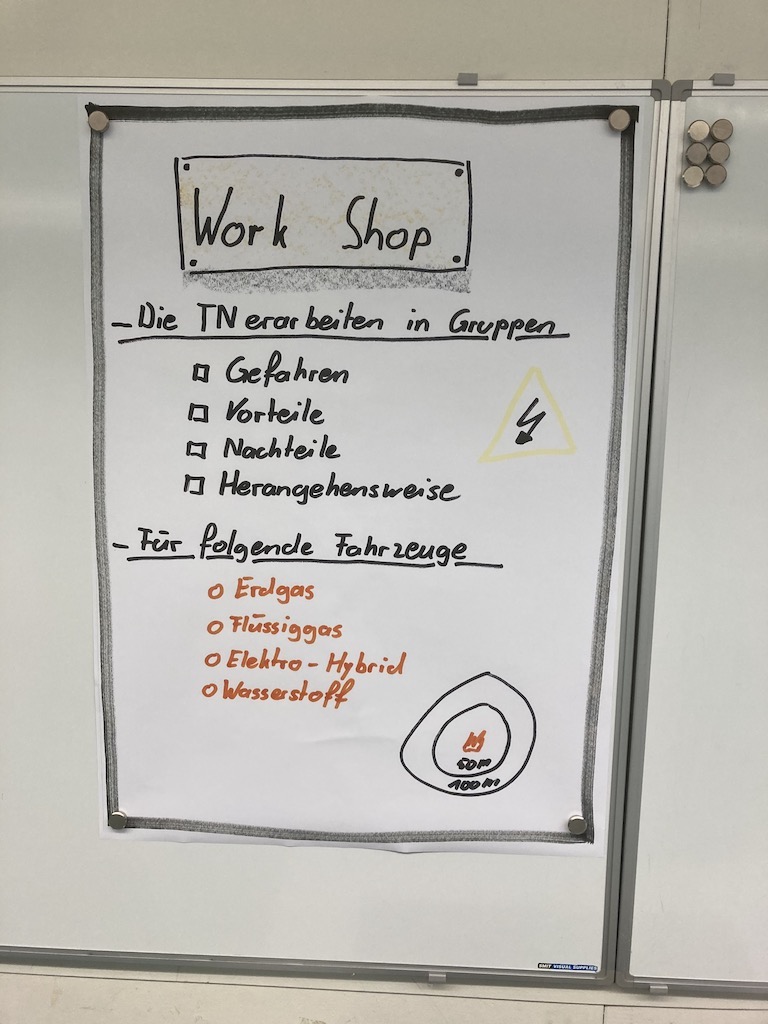 Work Shop
- Die TN erarbeiten in Gruppen
Gefahren
Vorteile
Nachteile
Herangehensweise
- Für folgende Fahrzeuge
Erdgas
Flüssiggas
Elektro - Hybrid
Wasserstoff
50m
100m
SMIT VISUAL SUPPLIES